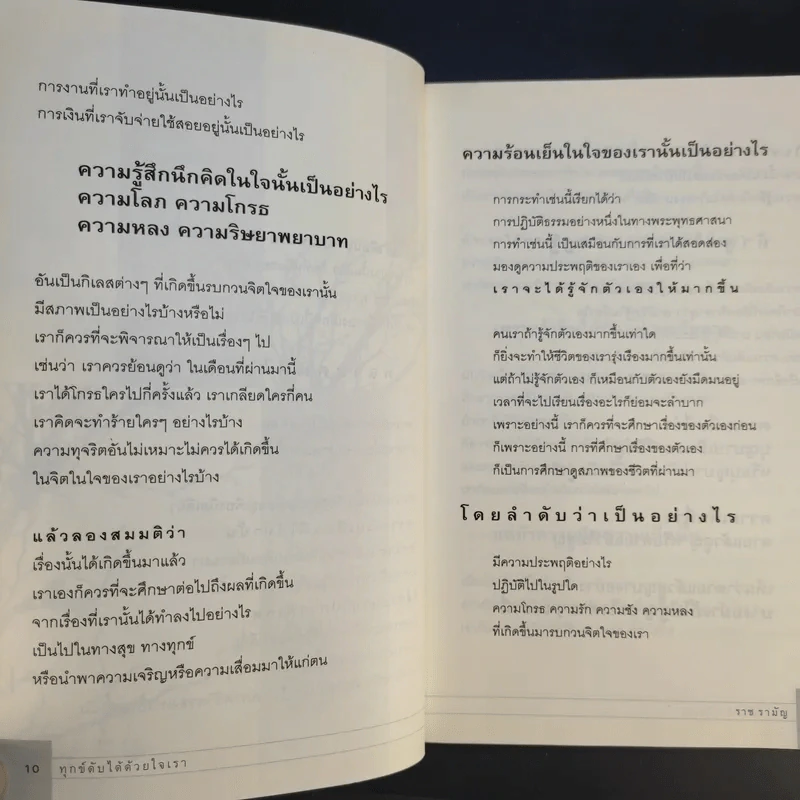 การงานที่เราทำอยู่นั้นเป็นอย่างไร
การเงินที่เราจับจ่ายใช้สอยอยู่นั้นเป็นอย่างไร
ความรู้สึกนึกคิดในใจนั้นเป็นอย่างไร
ความโลภ ความโกรธ
ความหลง ความริษยาพยาบาท
อันเป็นกิเลสต่างๆ ที่เกิดขึ้นรบกวนจิตใจของเรานั้น
มีสภาพเป็นอย่างไรบ้างหรือไม่
เราก็ควรที่จะพิจารณาให้เป็นเรื่องๆ ไป
เช่นว่า เราควรย้อนดูว่า ในเดือนที่ผ่านมานี้
เราได้โกรธใครไปกี่ครั้งแล้ว เราเกลียดใครกี่คน
เราคิดจะทำร้ายใครๆ อย่างไรบ้าง
ความทุจริตอันไม่เหมาะไม่ควรได้เกิดขึ้น
ในจิตในใจของเราอย่างไรบ้าง
แล้วลองสมมติว่า
เรื่องนั้นได้เกิดขึ้นมาแล้ว
เราเองก็ควรที่จะศึกษาต่อไปถึงผลที่เกิดขึ้น
จากเรื่องที่เรานั้นได้ทำลงไปอย่างไร
เป็นไปในทางสุข ทางทุกข์
หรือนำพาความเจริญหรือความเสื่อมมาให้แก่ตน
10 ทุกข์ดับได้ด้วยใจเรา
ความร้อนเย็นในใจของเรานั้นเป็นอย่างไร
การกระทำเช่นนี้เรียกได้ว่า
การปฏิบัติธรรมอย่างหนึ่งในทางพระพุทธศาสนา
การทำเช่นนี้ เป็นเสมือนกับการที่เราได้สอดส่อง
มองดูความประพฤติของเราเอง เพื่อที่ว่า
เราจะได้รู้จักตัวเองให้มากขึ้น
คนเราถ้ารู้จักตัวเองมากขึ้นเท่าใด
ก็ยิ่งจะทำให้ชีวิตของเรารุ่งเรืองมากขึ้นเท่านั้น
แต่ถ้าไม่รู้จักตัวเอง ก็เหมือนกับตัวเองยังมืดมนอยู่
เวลาที่จะไปเรียนเรื่องอะไรก็ย่อมจะลำบาก
เพราะอย่างนี้ เราก็ควรที่จะศึกษาเรื่องของตัวเองก่อน
ก็เพราะอย่างนี้ การที่ศึกษาเรื่องของตัวเอง
ก็เป็นการศึกษาดูสภาพของชีวิตที่ผ่านมา
โดยลำดับว่าเป็นอย่างไร
มีความประพฤติอย่างไร
ปฏิบัติไปในรูปใด
ความโกรธ ความรัก ความชัง ความหลง
ที่เกิดขึ้นมารบกวนจิตใจของเรา
ราช รามัญ